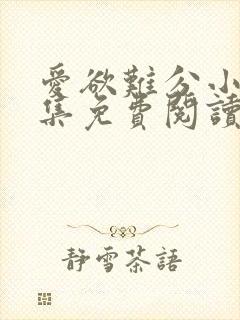 愛欲難分小
集免費閱讀
靜雪茶語